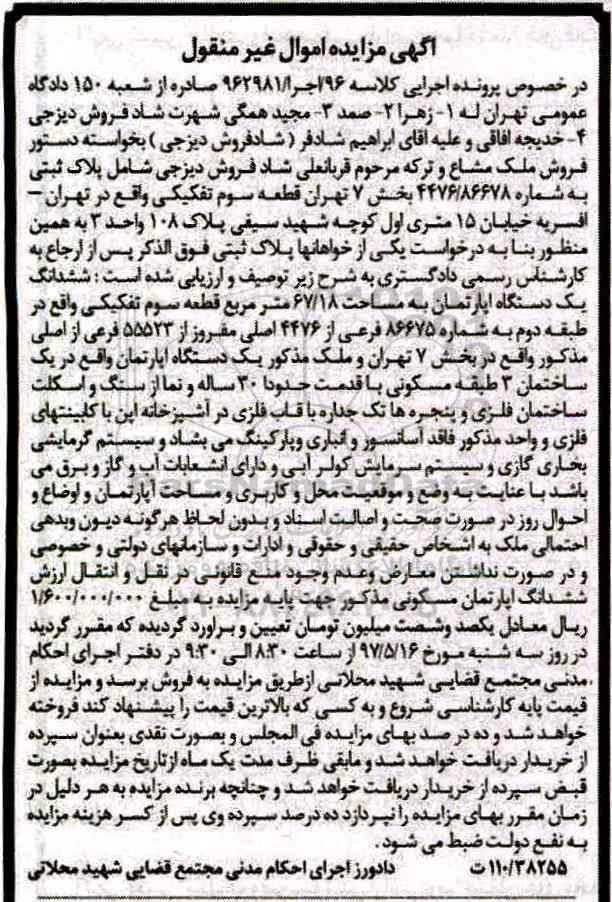 آگهی مزایده اموال غیر منقول
در خصوص پرونده اجرایی کلاسه ۹۶اجرا/۹۶۲۹۸۱ صادره از شعبه ۱۵۰ دادگاه
عمومی تهران له ۱- زهرا ۲- صمد ۳- مجید همگی شهرت شاد فروش دیزجی
۴- خدیجه افاقی و علیه اقای ابراهیم شادفر ( شادفروش دیزجی ) بخواسته دستور
فروش ملک مشاع و ترکه مرحوم قربانعلی شاد فروش دیزجی شامل پلاک ثبتی
به شماره ۴۴۷۶/۸۶۶۷۸ بخش ۷ تهران قطعه سوم تفکیکی واقع در تهران –
افسریه خیابان ۱۵ متری اول کوچه شهید سیفی پلاک ۱۰۸ واحد ۳ به همین
منظور بنا به درخواست یکی از خواهانها پلاک ثبتی فوق الذکر پس از ارجاع به
کارشناس رسمی دادگستری به شرح زیر توصیف و ارزیابی شده است : ششدانگ
یک دستگاه اپارتمان به مساحت ۶۷/۱۸ متر مربع قطعه سوم تفکیکی واقع در
طبقه دوم به شماره ۸۶۶۷۵ فرعی از ۴۴۷۶ اصلی مفروز از ۵۵۵۲۳ فرعی از اصلی
مذکور واقع در بخش ۷ تهران و ملک مذکور یک دستگاه اپارتمان واقع در یک
ساختمان ۳ طبقه مسکونی با قدمت حدودا ۳۰ ساله و نما از سنگ و اسکلت
ساختمان فلزی و پنجره ها تک جداره با قاب فلزی در آشپزخانه اپن با کابینتهای
فلزی و واحد مذکور فاقد آسانسور و انباری وپارکینگ می بشاد و سیستم گرمایشی
بخاری گازی و سیستم سرمایش کولر آبی و دارای انشعابات آب و گاز و برق می
باشد با عنایت به وضع و موقعیت محل و کاربری و مساحت آپارتمان و اوضاع و
احوال روز در صورت صحت و اصالت اسناد و بدون لحاظ هرگونه دیون وبدهی
احتمالی ملک به اشخاص حقیقی و حقوقی و ادارات و سازمانهای دولتی و خصوصی
و در صورت نداشتن معارض وعدم وجود منع قانونی در نقل و انتقال ارزش
ششدانگ اپارتمان مسکونی مذکور جهت پایه مزایده به مبلغ ۱/۶۰۰/۰۰۰/۰۰۰
ریال معادل یکصد وشصت میلیون تومان تعیین و براورد گردیده که مقرر گردید
در روز سه شنبه مورخ ۹۷/۵/۱۶ از ساعت ۸:۳۰ الی ۹:۳۰ در دفتر اجرای احکام
مدنی مجتمع قضایی شهید محلاتی ازطریق مزایده به فروش برسد و مزایده از
قیمت پایه کارشناسی شروع و به کسی که بالاترین قیمت را پیشنهاد کند فروخته
خواهد شد و ده در صد بهای مزایده فی المجلس و بصورت نقدی بعنوان سپرده
از خریدار دریافت خواهد شد و مابقی ظرف مدت یک ماه ازتاریخ مزایده بصورت
قبض سپرده از خریدار دریافت خواهد شد و چنانچه برنده مزایده به هر دلیل در
زمان مقرر بهای مزایده را نپردازد ده درصد سپرده وی پس از کسر هزینه مزایده
به نفع دولت ضبط می شود .
۱۱۰/۳۸۲۵۵ت دادورز اجرای احکام مدنی مجتمع قضایی شهید محلاتی